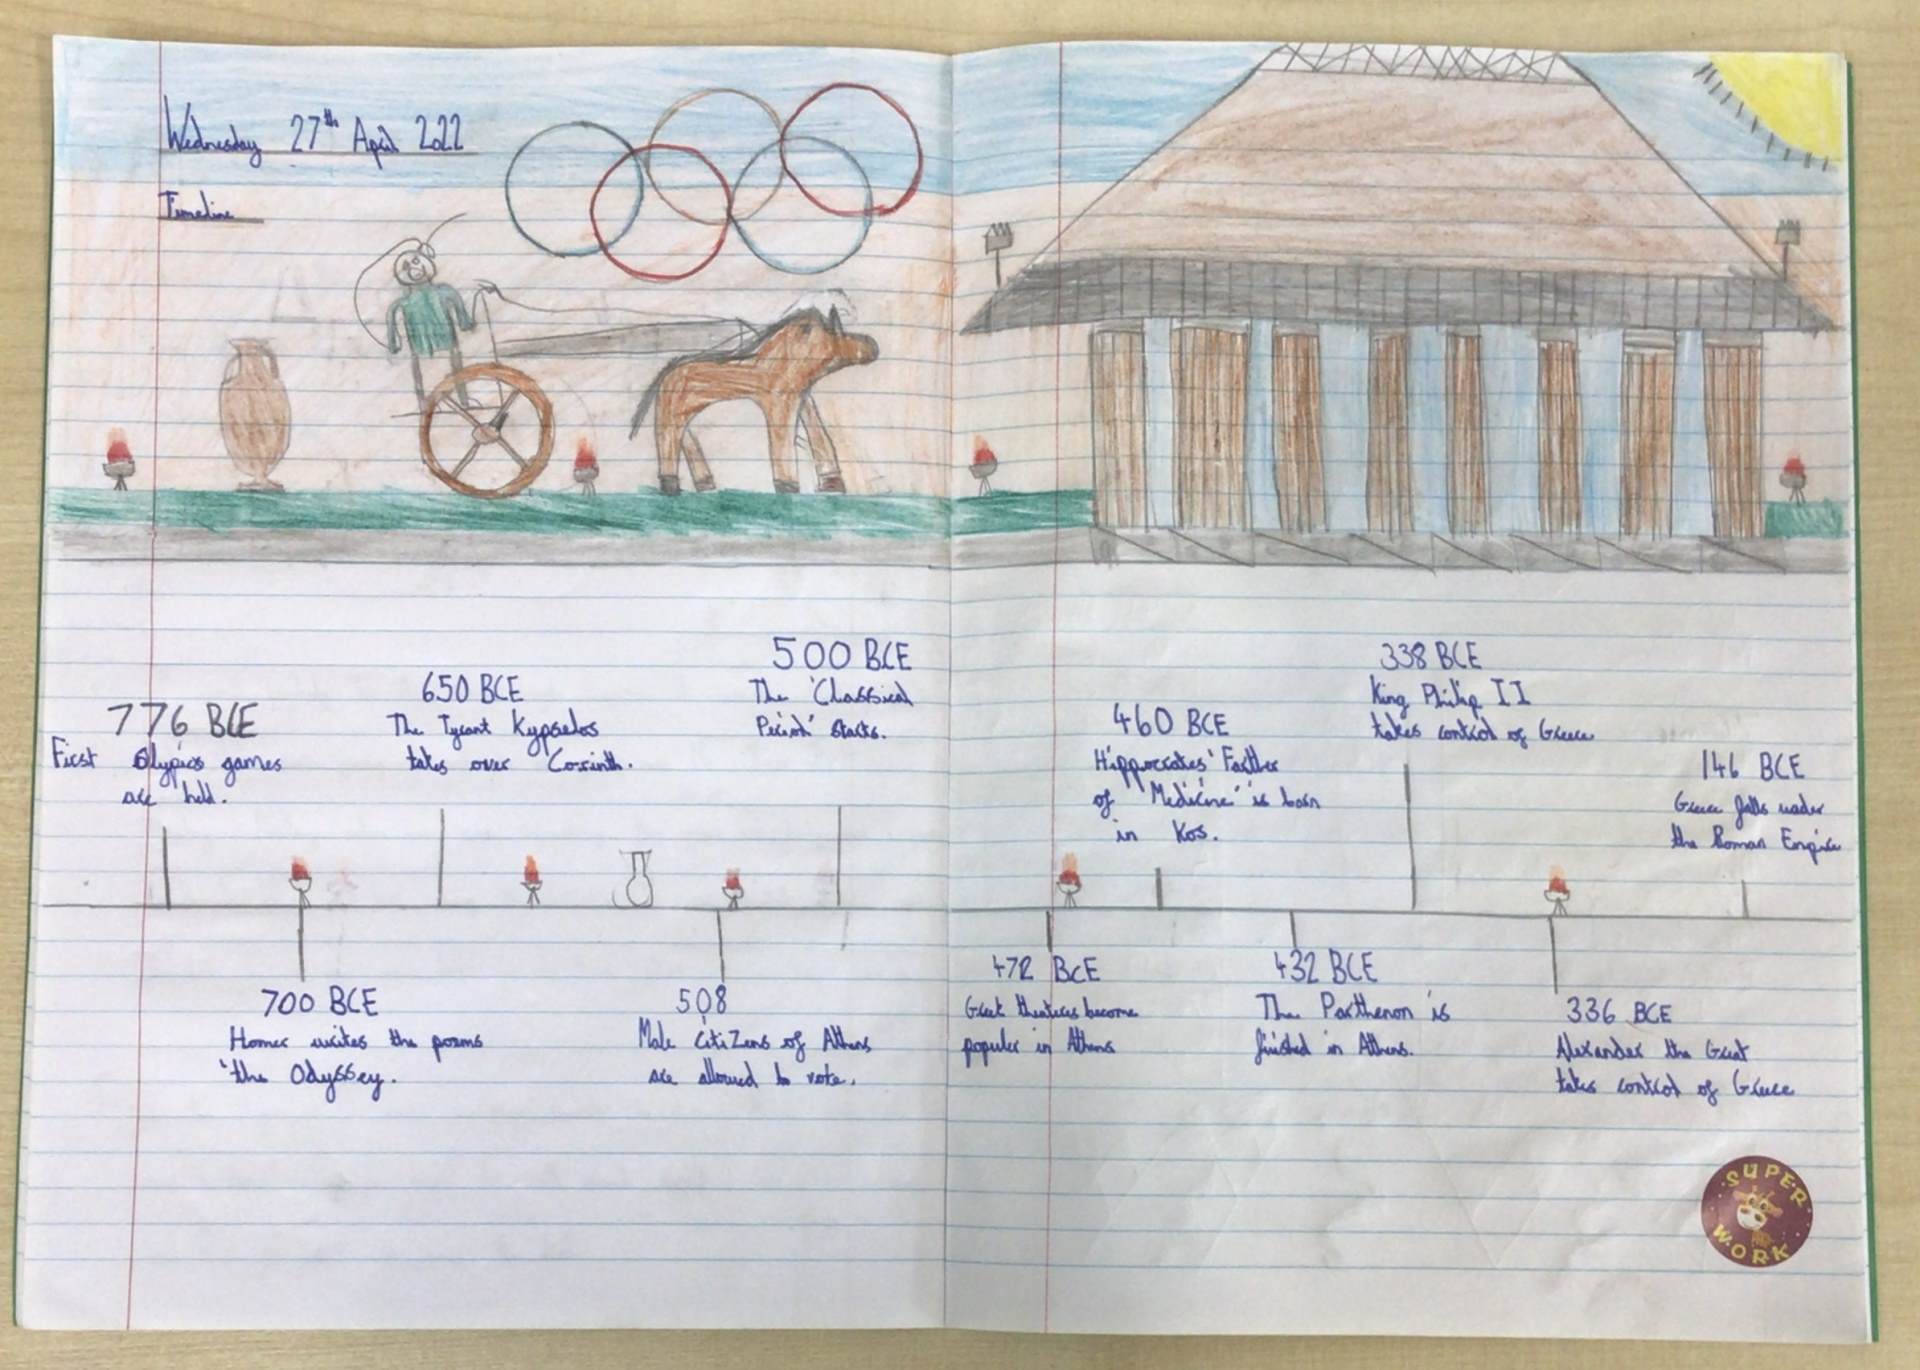 Wednesday 27th April 2022
Timeline
776 BCE
First Olypics games
are held.
650 BCE
The Tyrant Kypselos
takes over Corinth.
500 BCE
The 'Classical
Period' starts.
700 BCE
Homer writes the poems
'the Odyssey.
508
Male citizens of Athens
are allowed to vote.
460 BCE
Hippocrates 'Farther
of Medicine' is born
in Kos.
338 BCE
King Philip II
takes control of Greece
146 BCE
Greece falls under
the Roman Empire
472 BCE
Greek theatres become
populer in Athens
432 BCE
The Parthenon is
finished in Athens.
336 BCE
Alexander the Great
takes control of Greece
SUPER
WORK